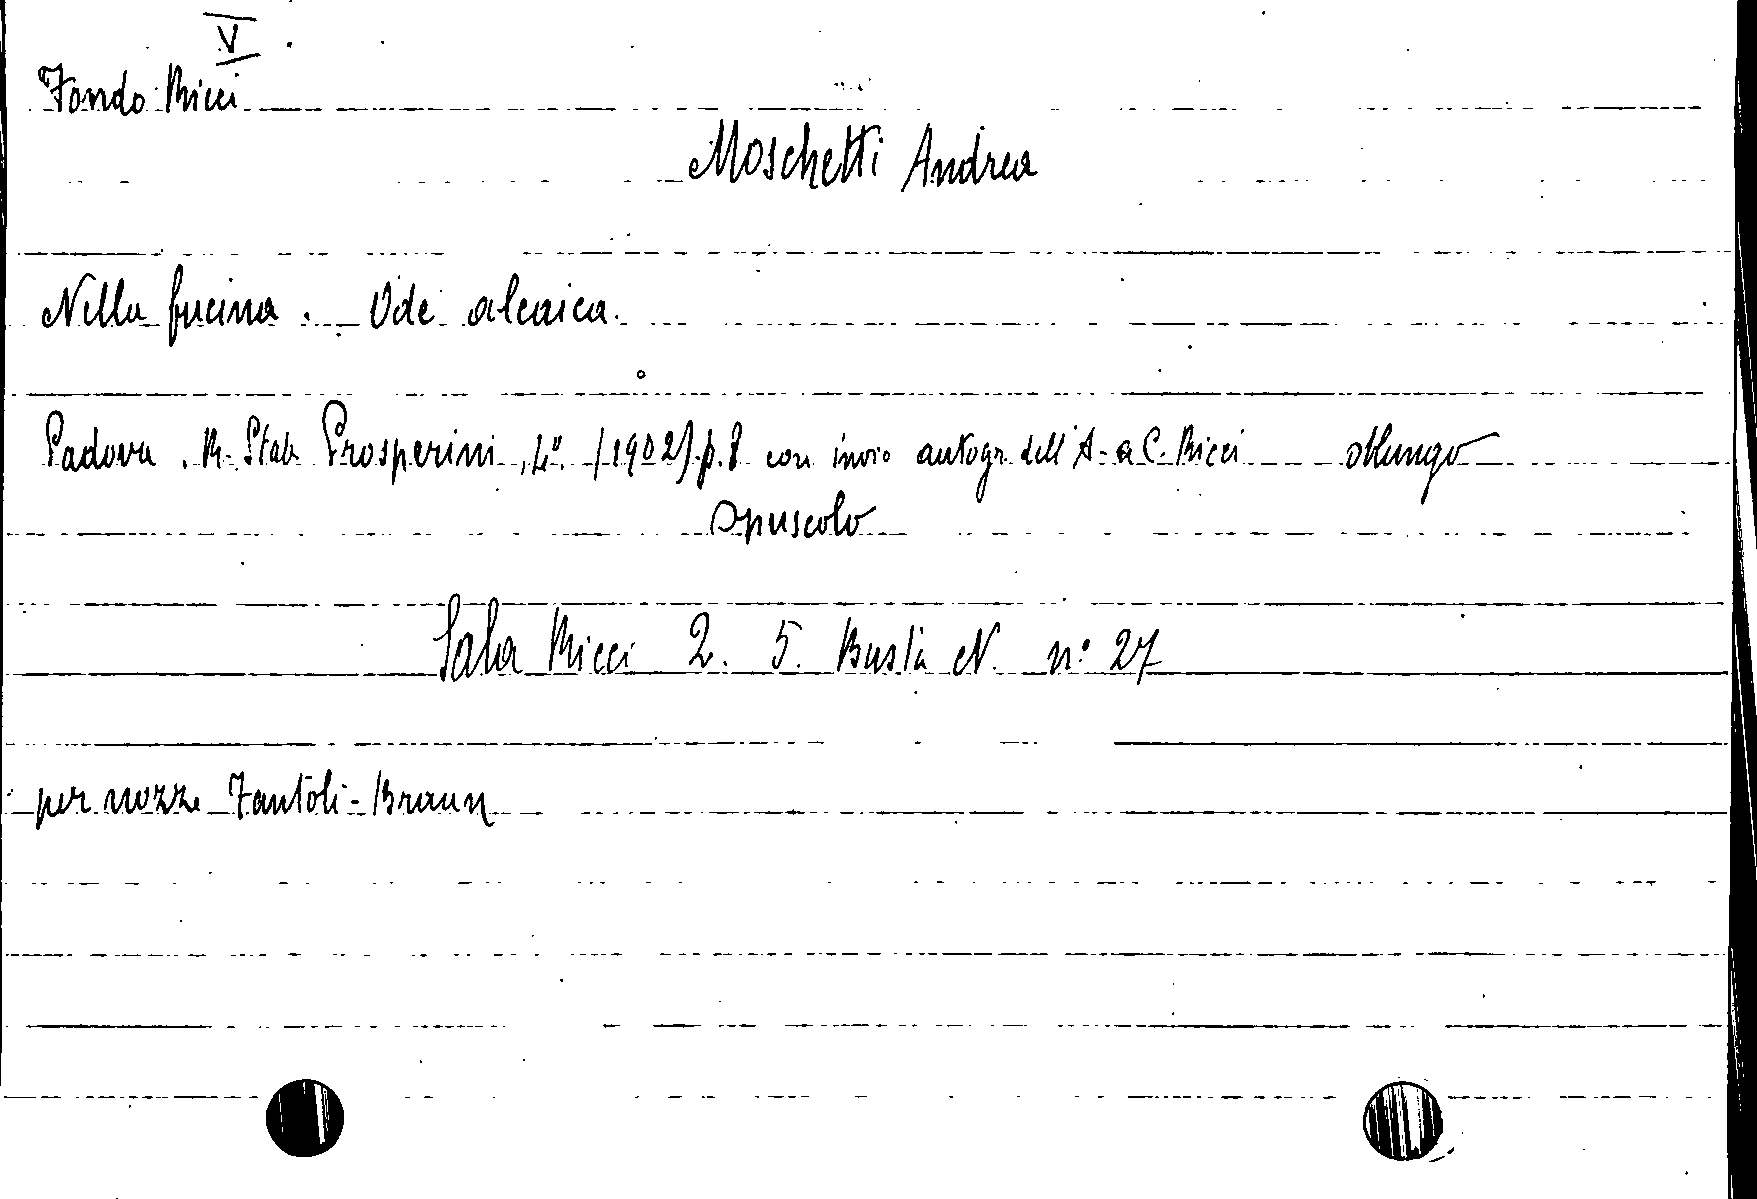 V
Fondo Ricci
Moschetti Andrea
Nella fucina. Ode alcaica.
Padova. R. Stab. Prosperini, 4°. (1902) p. 8 con invio autogr. dell'A. a C. Ricci oblungo
Opuscolo
Sala Ricci 2. 5. Busta N. n° 27
per nozze Fantoli-Braun